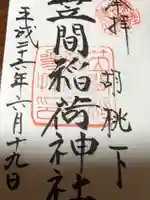 奉拝
胡桃下
笠間稲荷神社
平成二十六年六月十九日